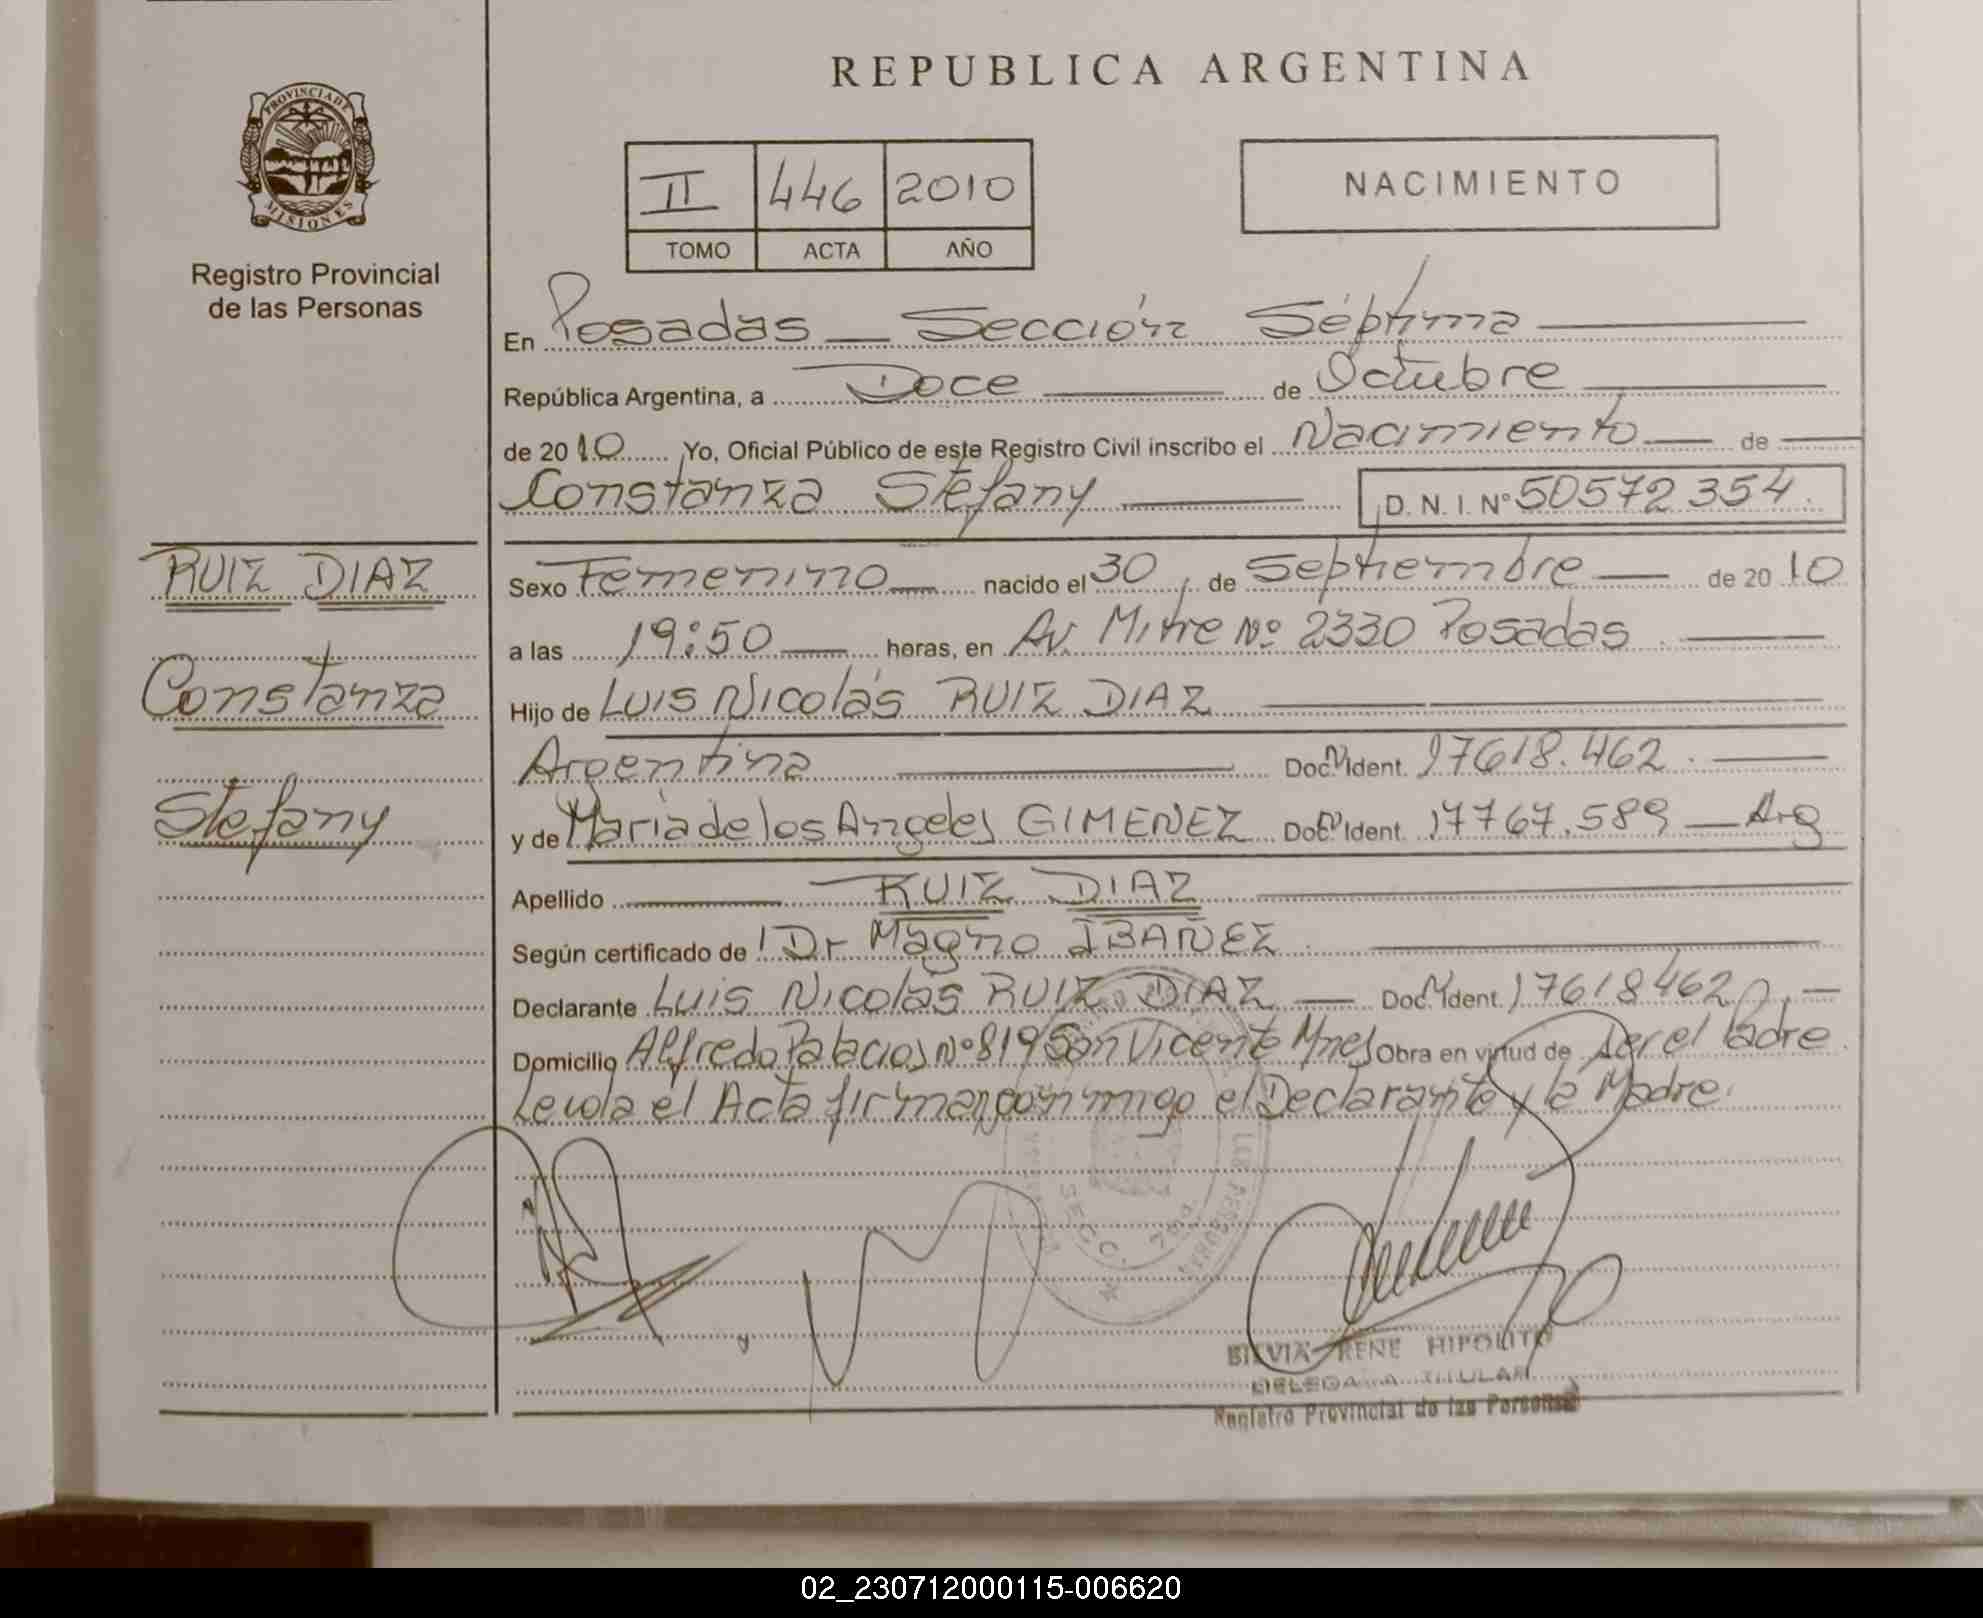 REPUBLICA ARGENTINA
PROVINCIA DE
MISIONES
Registro Provincial
de las Personas
II 446 2010
TOMO ACTA AÑO
NACIMIENTO
En Posadas — Sección Séptima
República Argentina, a Doce de Octubre
de 2010 Yo, Oficial Público de este Registro Civil inscribo el Nacimiento de
Constanza Stefany D. N. I. Nº 50572354.
RUIZ DIAZ
Constanza
Stefany
Sexo Femenino nacido el 30 de Septiembre de 2010
a las 19:50 horas, en Av. Mitre Nº 2330 Posadas
Hijo de Luis Nicolás RUIZ DIAZ
Argentina Doc. N Ident. 17618.462.
y de María de los Angeles GIMENEZ Doc. N Ident. 17767.589 — Arg
Apellido RUIZ DIAZ
Según certificado de Dr Magno IBAÑEZ
Declarante Luis Nicolás RUIZ DIAZ — Doc. N Ident. 17618462
Domicilio Alfredo Palacios Nº 819 San Vicente Mnes Obra en virtud de ser el Padre.
Leida el Acta firman conmigo el Declarante y la Madre.
SECC. 7ma
SILVIA IRENE HIPOLITO
DELEGADA TITULAR
Registro Provincial de las Personas
02_230712000115-006620